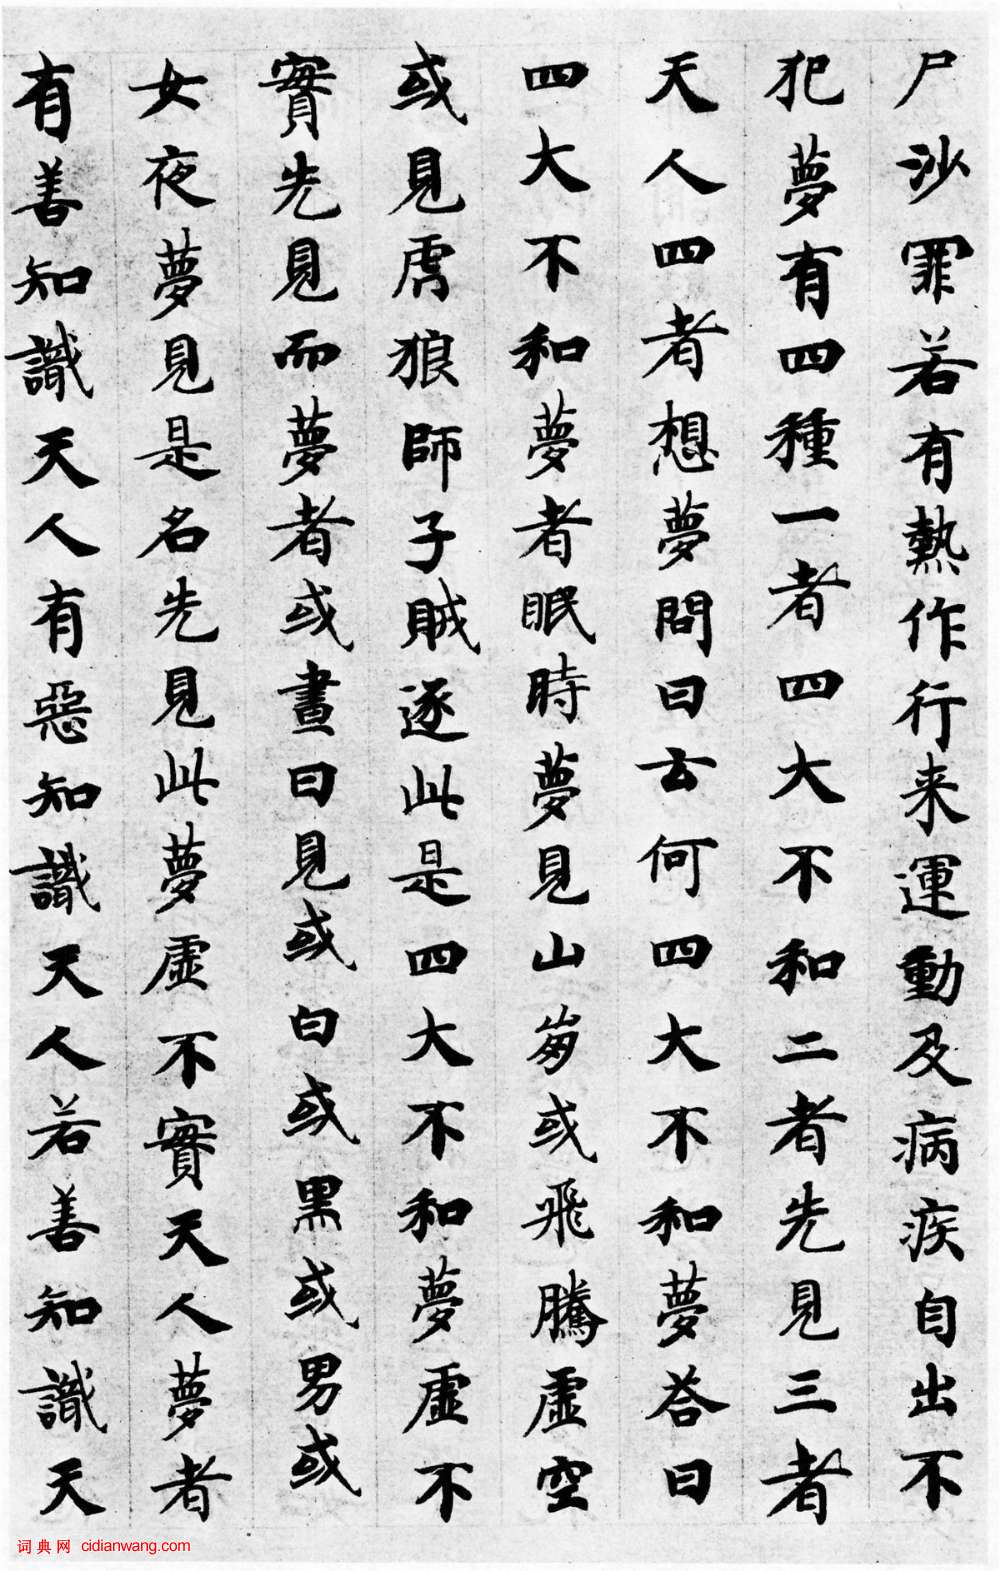 尸沙罪若有熱作行来運動及病疾自出不
犯夢有四種一者四大不和二者先見三者
天人四者想夢問曰云何四大不和夢荅曰
四大不和夢者眠時夢見山崩或飛騰虛空
或見虎狼師子賊逐此是四大不和夢虛不
實先見而夢者或晝日見或白或黑或男或
女夜夢見是名先見此夢虛不實天人夢者
有善知識天人有惡知識天人若善知識天
词典网 cidianwang.com